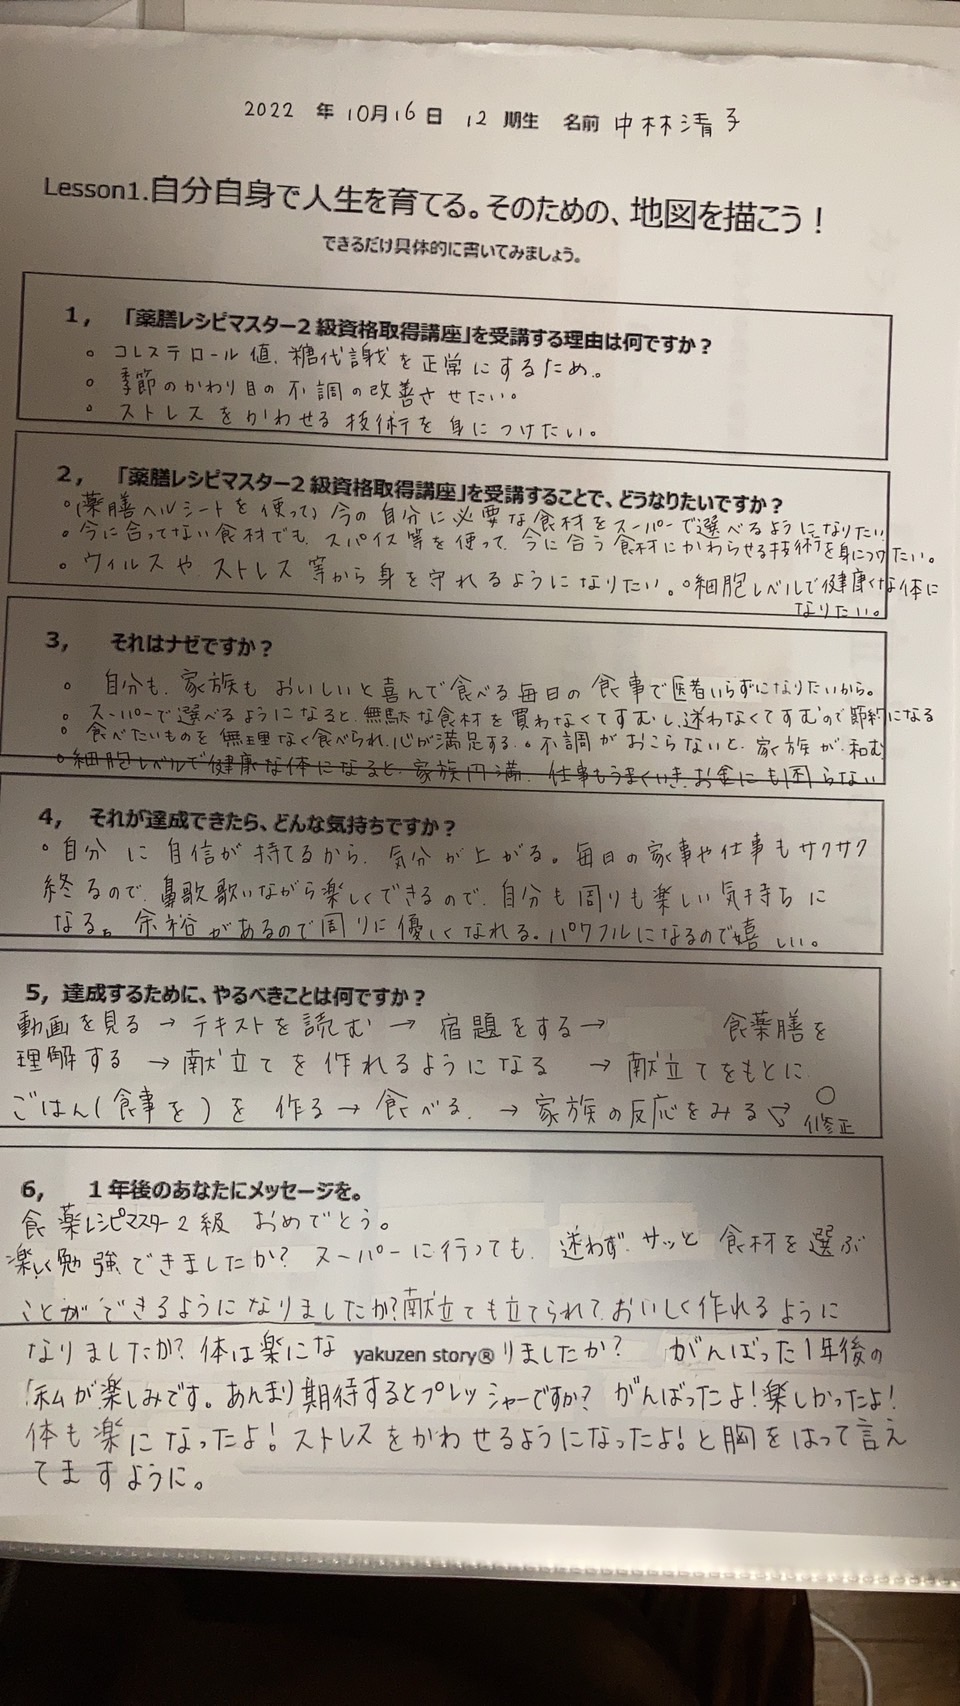 2022 年 10月16日 12 期生 名前 中林清子
Lesson1.自分自身で人生を育てる。そのための、地図を描こう！
できるだけ具体的に書いてみましょう。
1， 「薬膳レシピマスター2級資格取得講座」を受講する理由は何ですか？
。コレステロール値、糖代謝を正常にするため。
。季節のかわり目の不調の改善させたい。
。ストレスをかわせる技術を身につけたい。
2， 「薬膳レシピマスター2級資格取得講座」を受講することで、どうなりたいですか？
。(薬膳ヘルシートを使って)今の自分に必要な食材をスーパーで選べるようになりたい
。今に合ってない食材でも、スパイス等を使って、今に合う食材にかわらせる技術を身につけたい。
。ウィルスや、ストレス等から身を守れるようになりたい。。細胞レベルで健康な体に
なりたい。
3， それはナゼですか？
。自分も、家族もおいしいと喜んで食べる毎日の食事で医者いらずになりたいから。
。スーパーで選べるようになると、無駄な食材を買わなくてすむし、迷わなくてすむので節約になる
。食べたいものを無理なく食べられ、心が満足する。。不調がおこらないと、家族が和む
。細胞レベルで健康な体になると、家族円満、仕事もうまくいき、お金にも困らない
4， それが達成できたら、どんな気持ちですか？
。自分に自信が持てるから、気分が上がる。毎日の家事や仕事もサクサク
終るので、鼻歌歌いながら楽しくできるので、自分も周りも楽しい気持ちに
なる。余裕があるので周りに優しくなれる。パワフルになるので嬉しい。
5，達成するために、やるべきことは何ですか？
動画を見る → テキストを読む → 宿題をする → 食薬膳を
理解する → 献立てを作れるようになる → 献立てをもとに
ごはん(食事を)を作る → 食べる、→ 家族の反応をみる ○
修正
6， 1年後のあなたにメッセージを。
食薬レシピマスター2級 おめでとう。
楽しく勉強できましたか？ スーパーに行っても、迷わず、サッと食材を選ぶ
ことができるようになりましたか？献立ても立てられて、おいしく作れるように
なりましたか？体は楽になりましたか？ がんばった1年後の
yakuzen story®
私が楽しみです。あんまり期待するとプレッシャーですか？ がんばったよ！楽しかったよ！
体も楽になったよ！ストレスをかわせるようになったよ！と胸をはって言え
てますように。